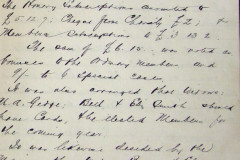 The Honory Subscriptions amounted to
£5.12.7; Cheque from Charity £2; &
Members Subscriptions to £3 13 2.
The sum of £6.10. was voted as
bonuses to the Ordinary members and
9/- to 6 Special Cases.
It was also arranged that Messrs
W. A. Gedge; Bell & Ely Smith should
have Cards, & be elected Members for
the coming year.
It was likewise decided by the